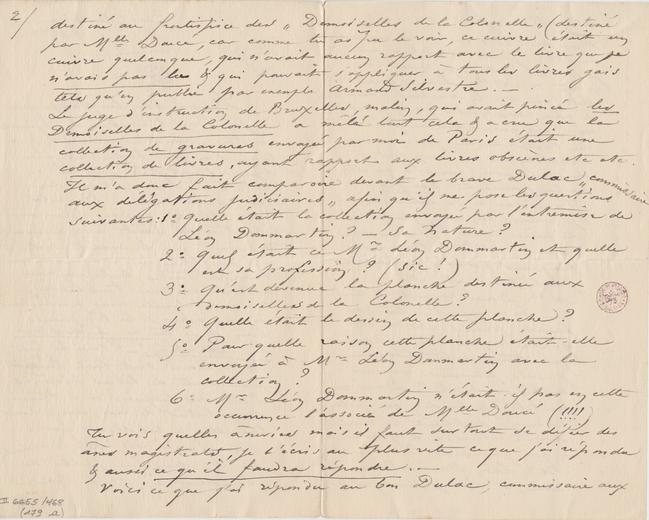 2/
destiné au frontispice des „ Demoiselles de la Colonelle „ (destiné
par Mlle Doucé, car comme tu as pu le voir, ce cuivre était un
cuivre quelconque, qui n'avait aucun rapport avec le livre que je
n'avais pas lu & qui pouvait s'appliquer à tous les livres gais
tels qu'en publie par exemple Armand Silvestre. —
Le juge d'instruction de Bruxelles, malin, qui avait pincé les
Demoiselles de la Colonelle a mêlé tout cela & a cru que la
collection de gravures envoyée par moi de Paris était une
collection de livres, ayant rapport aux livres obscènes etc etc.
Il m'a donc fait comparoir devant le brave Dulac „ commissaire
aux délégations judiciaires „ afin qu'il me pose les questions
suivantes: 1o Quelle était la collection envoyée par l'entremise de
Léon Dommartin? — Sa nature?
2o Quel était ce Mr Léon Dommartin et quelle
est sa profession? (sic!)
3o Qu'est devenue la planche destinée aux
demoiselles de la Colonelle?
4o Quelle était le dessin de cette planche?
5o Pour quelle raison cette planche était-elle
envoyée à Mr Léon Dommartin avec la
collection?
6o Mr Léon Dommartin n'était-il pas en cette
occurrence l'associé de Mlle Doucé (!!!!)
Tu vois quelles âneries mais il faut surtout se défier des
ânes magistrats, je t'écris au plus vite ce que j'ai répondu
& aussi ce qu'il faudra répondre. —
Voici ce que j'ai répondu au bon Dulac, commissaire aux
II 6655/468
(179 a)